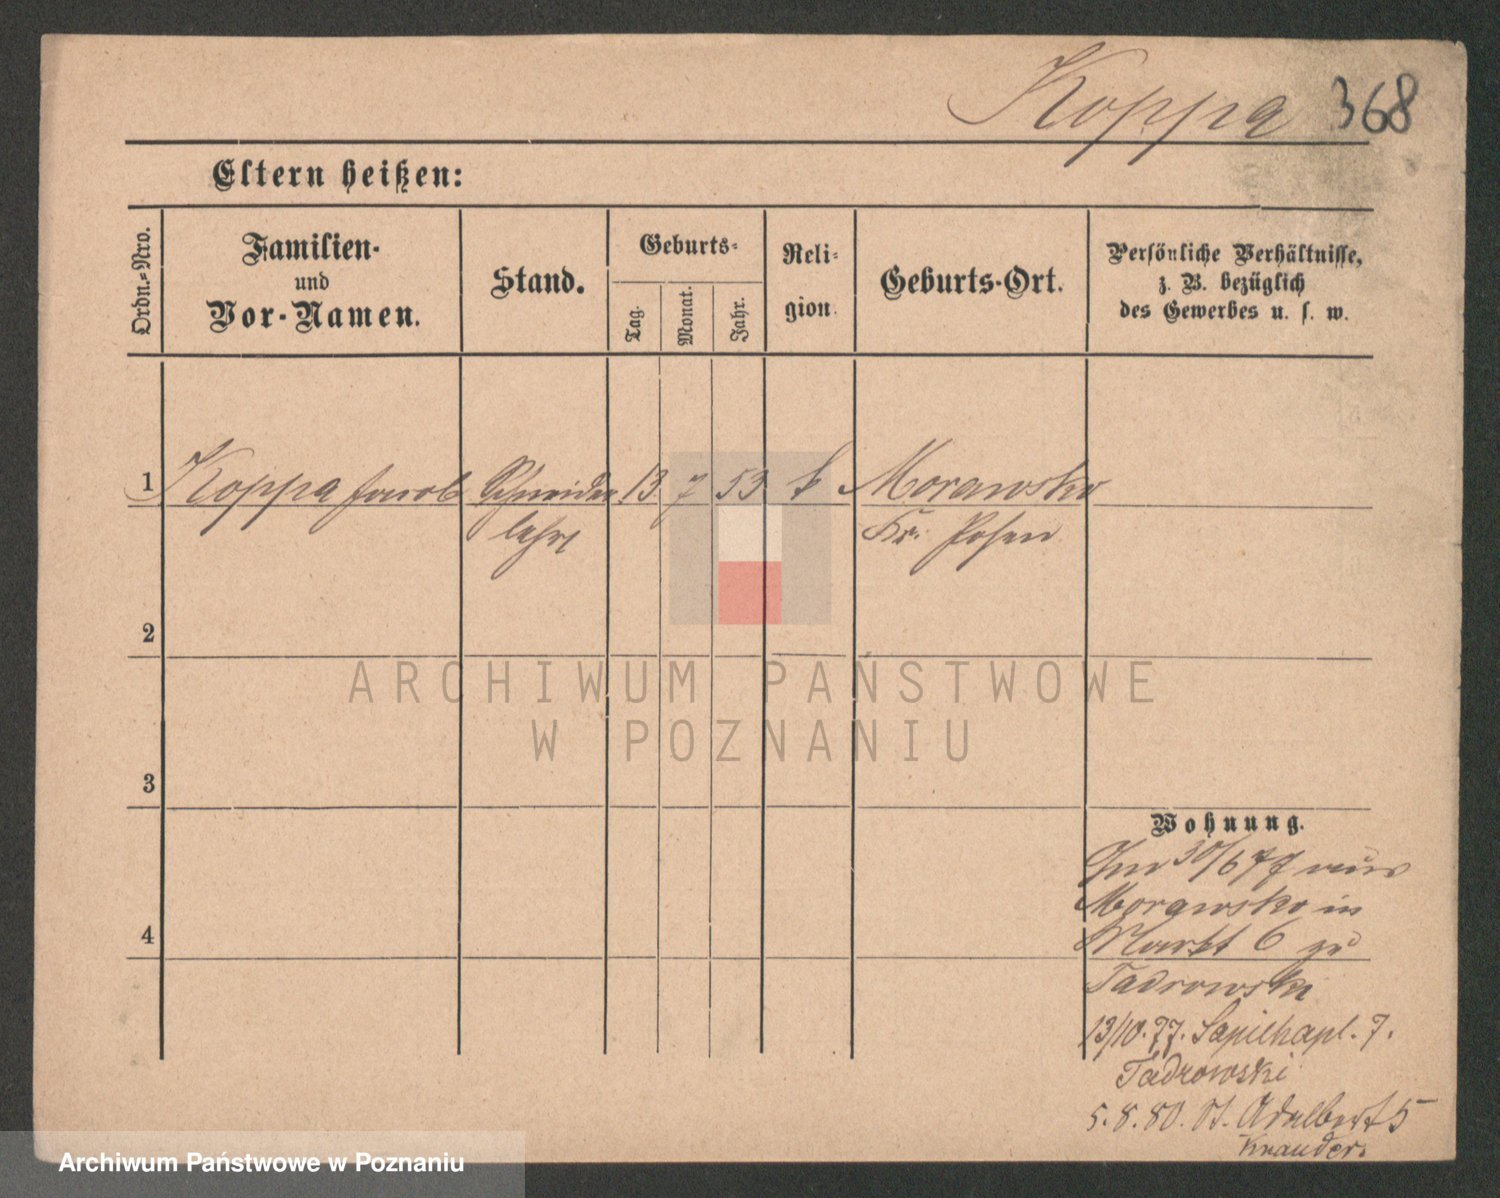 Koppa 368
Eltern heißen:
Ordn.-Nro.
Familien-
und
Vor-Namen.
Stand.
Geburts-
Tag.
Monat.
Jahr.
Reli-
gion.
Geburts-Ort.
Persönliche Verhältnisse,
z. B. bezüglich
des Gewerbes u. s. w.
1 Koppa Jacob Schneider 13 7 53 k Morawsko
lehrl Kr. Posen
2
3
4
Wohnung.
Am 30/6 77 aus
Morawsko in
Markt 6 zu
Tadrowski
13/10.77. Sapiehapl. 7.
Tadrowski
5.8.80. St. Adalbert 5
ARCHIWUM PAŃSTWOWE
W POZNANIU
Archiwum Państwowe w Poznaniu